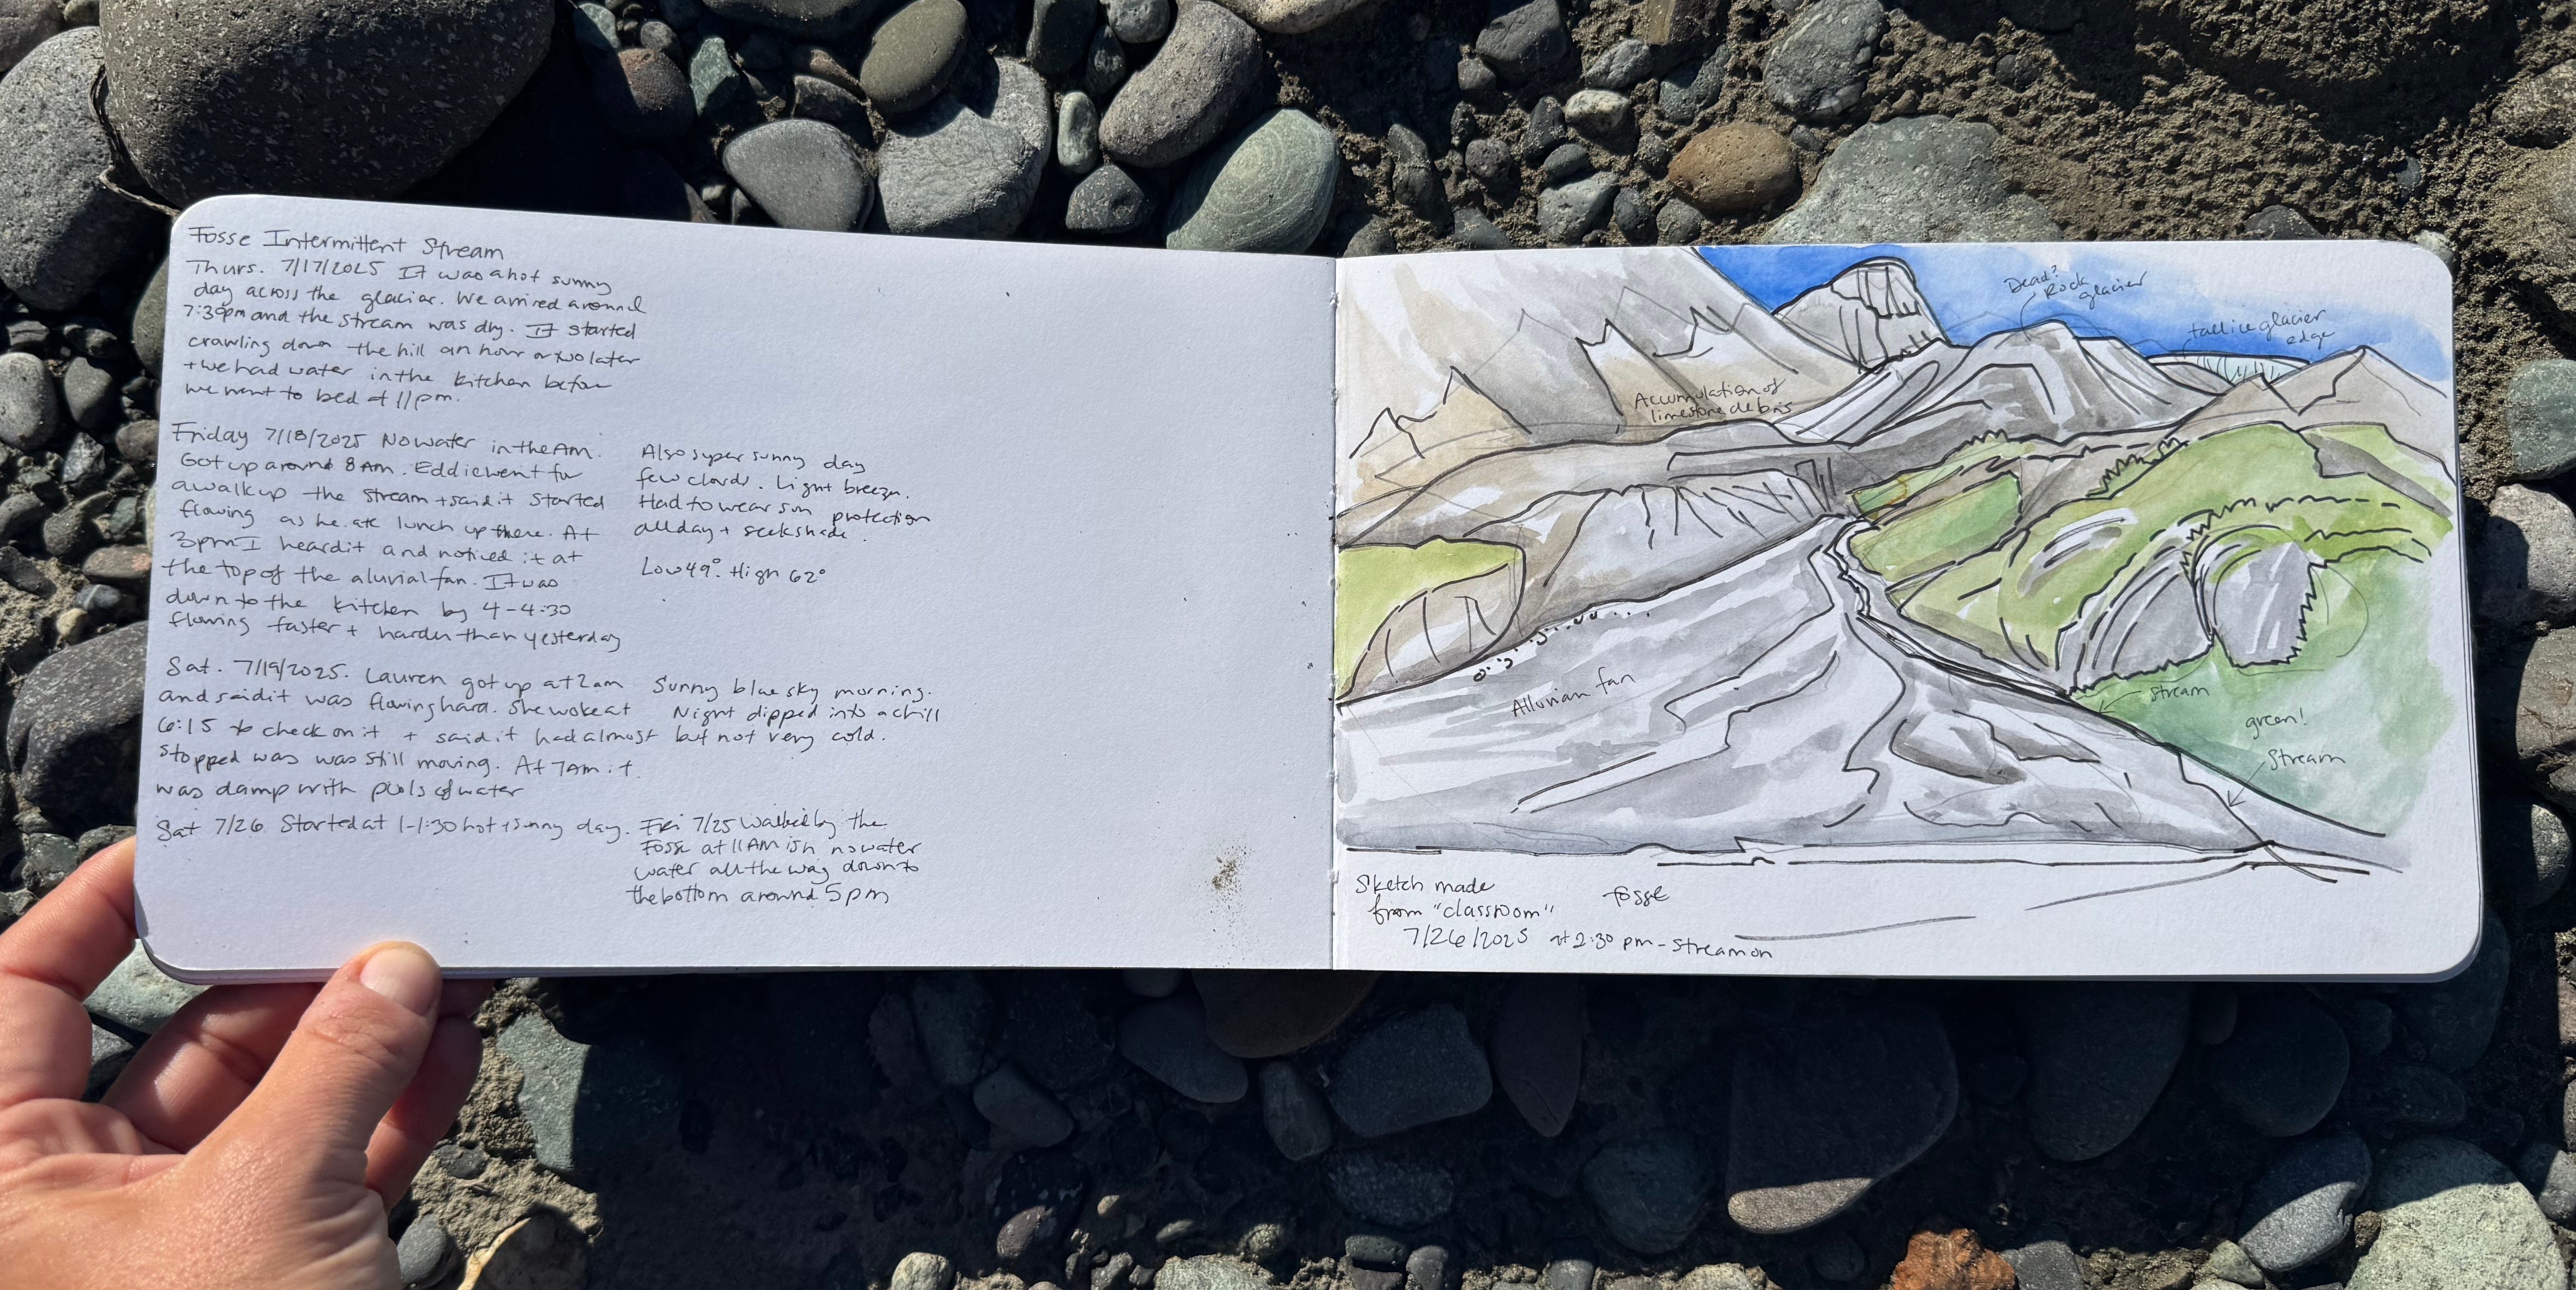 Fosse Intermittent Stream
Thurs. 7/17/2025 It was a hot sunny
day across the glacier. We arrived around
7:30pm and the stream was dry. It started
crawling down the hill an hour or two later
+ we had water in the kitchen before
we went to bed at 11pm.
Friday 7/18/2025 No water in the Am.
Got up around 8 Am. Eddie went for
a walk up the stream + said it started
flowing as he ate lunch up there. At
3pm I heard it and noticed it at
the top of the aluvial fan. It was
down to the kitchen by 4-4:30
flowing faster + harder than yesterday
Also super sunny day
few clouds. Light breeze.
Had to wear sun protection
all day + seek shade.
Low 49° High 62°
Sat. 7/19/2025. Lauren got up at 2am
and said it was flowing hard. She woke at
6:15 to check on it + said it had almost
stopped was was still moving. At 7Am it
was damp with pools of water
Sunny blue sky morning.
Night dipped into a chill
but not very cold.
Sat 7/26 Started at 1-1:30 hot + sunny day.
Fri 7/25 Walked by the
Fosse at 11Am ish no water
water all the way down to
the bottom around 5pm
Dead?
Rock
glacier
tall ice glacier
edge
Accumulation of
limestone debris
Alluvian fan
stream
green!
Stream
Sketch made
from "classroom"
7/26/2025 at 2:30 pm - stream on
fosse